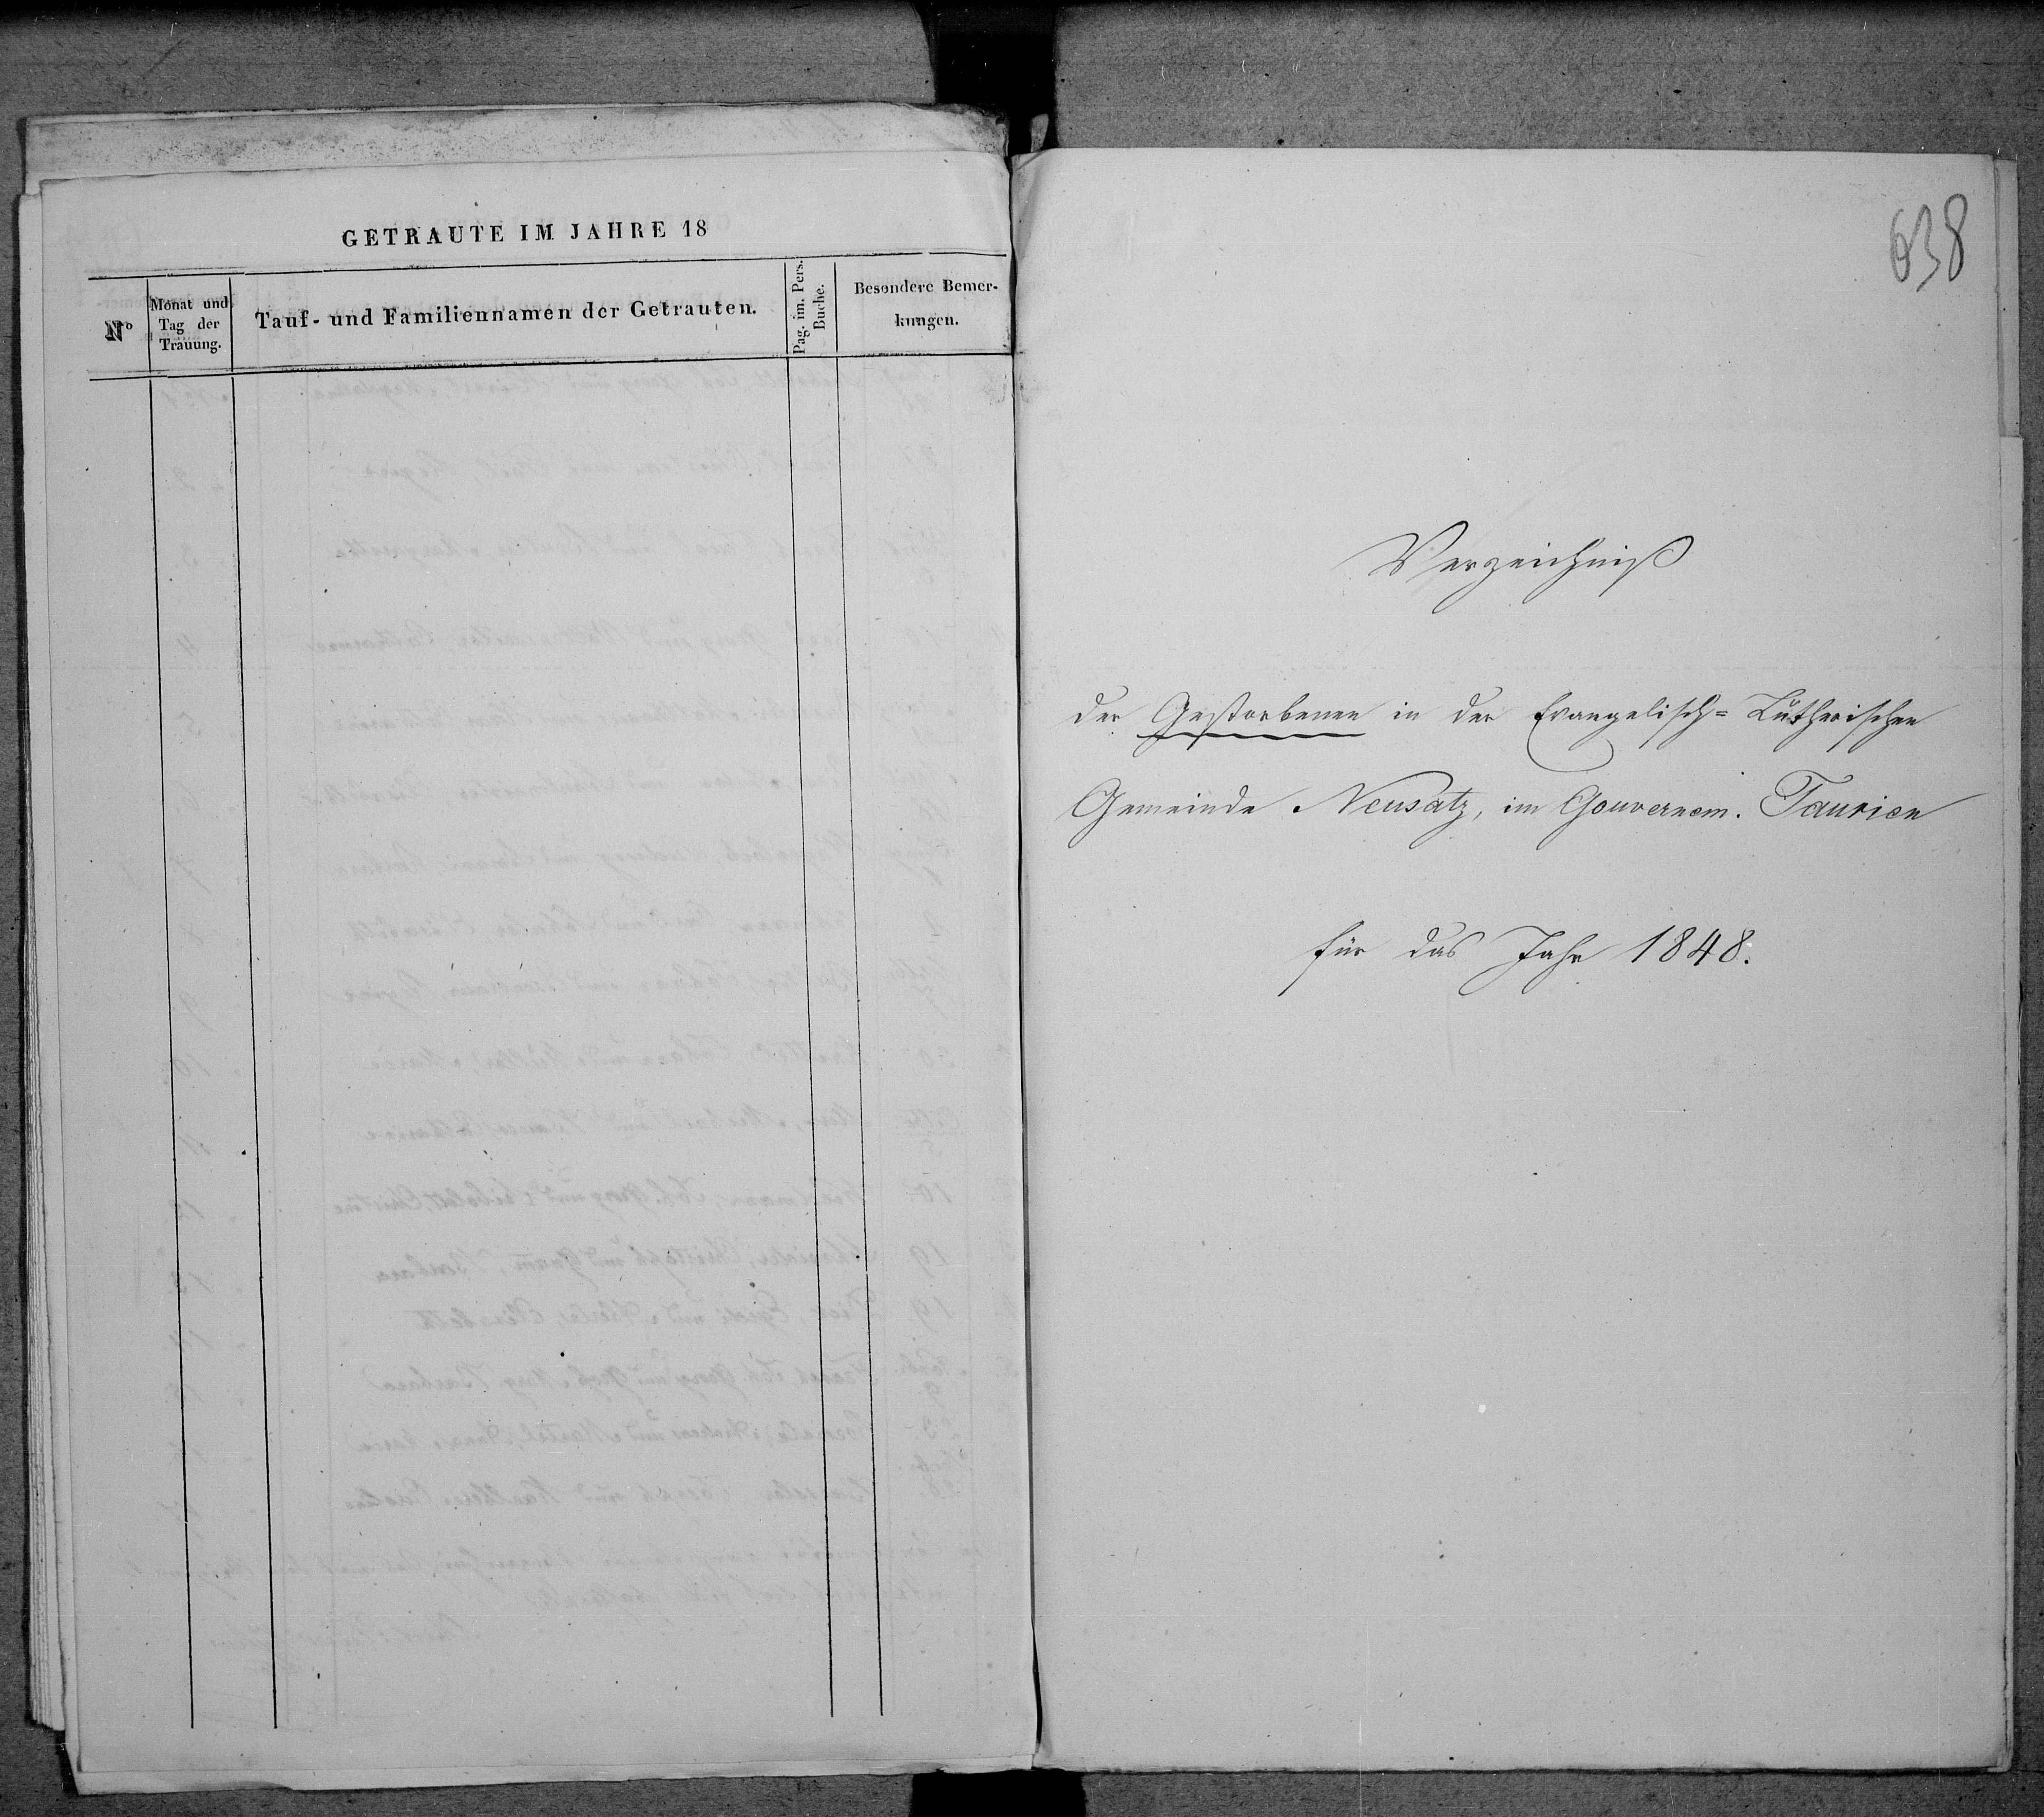 GETRAUTE IM JAHRE 18
Nº
Monat und
Tag der
Trauung.
Tauf- und Familiennamen der Getrauten.
Pag. im. Pers.
Buche.
Besondere Bemer-
kungen.
638
Verzeichniß
der Gestorbenen in der Evangelisch= Lutherischen
Gemeinde Neusatz, im Gouvernem. Taurien
für das Jahr 1848.